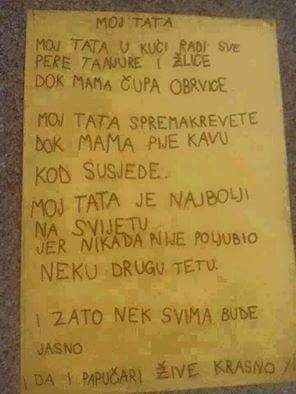 MOJ TATA
MOJ TATA U KUĆI RADI SVE
PERE TANJURE I ŽLICE
DOK MAMA ČUPA OBRVICE.
MOJ TATA SPREMAKREVETE
DOK MAMA PIJE KAVU
KOD SUSJEDE.
MOJ TATA JE NAJBOLJI
NA SVIJETU
JER NIKADA NIJE POLJUBIO
NEKU DRUGU TETU.
I ZATO NEK SVIMA BUDE
JASNO
DA I PAPUČARI ŽIVE KRASNO